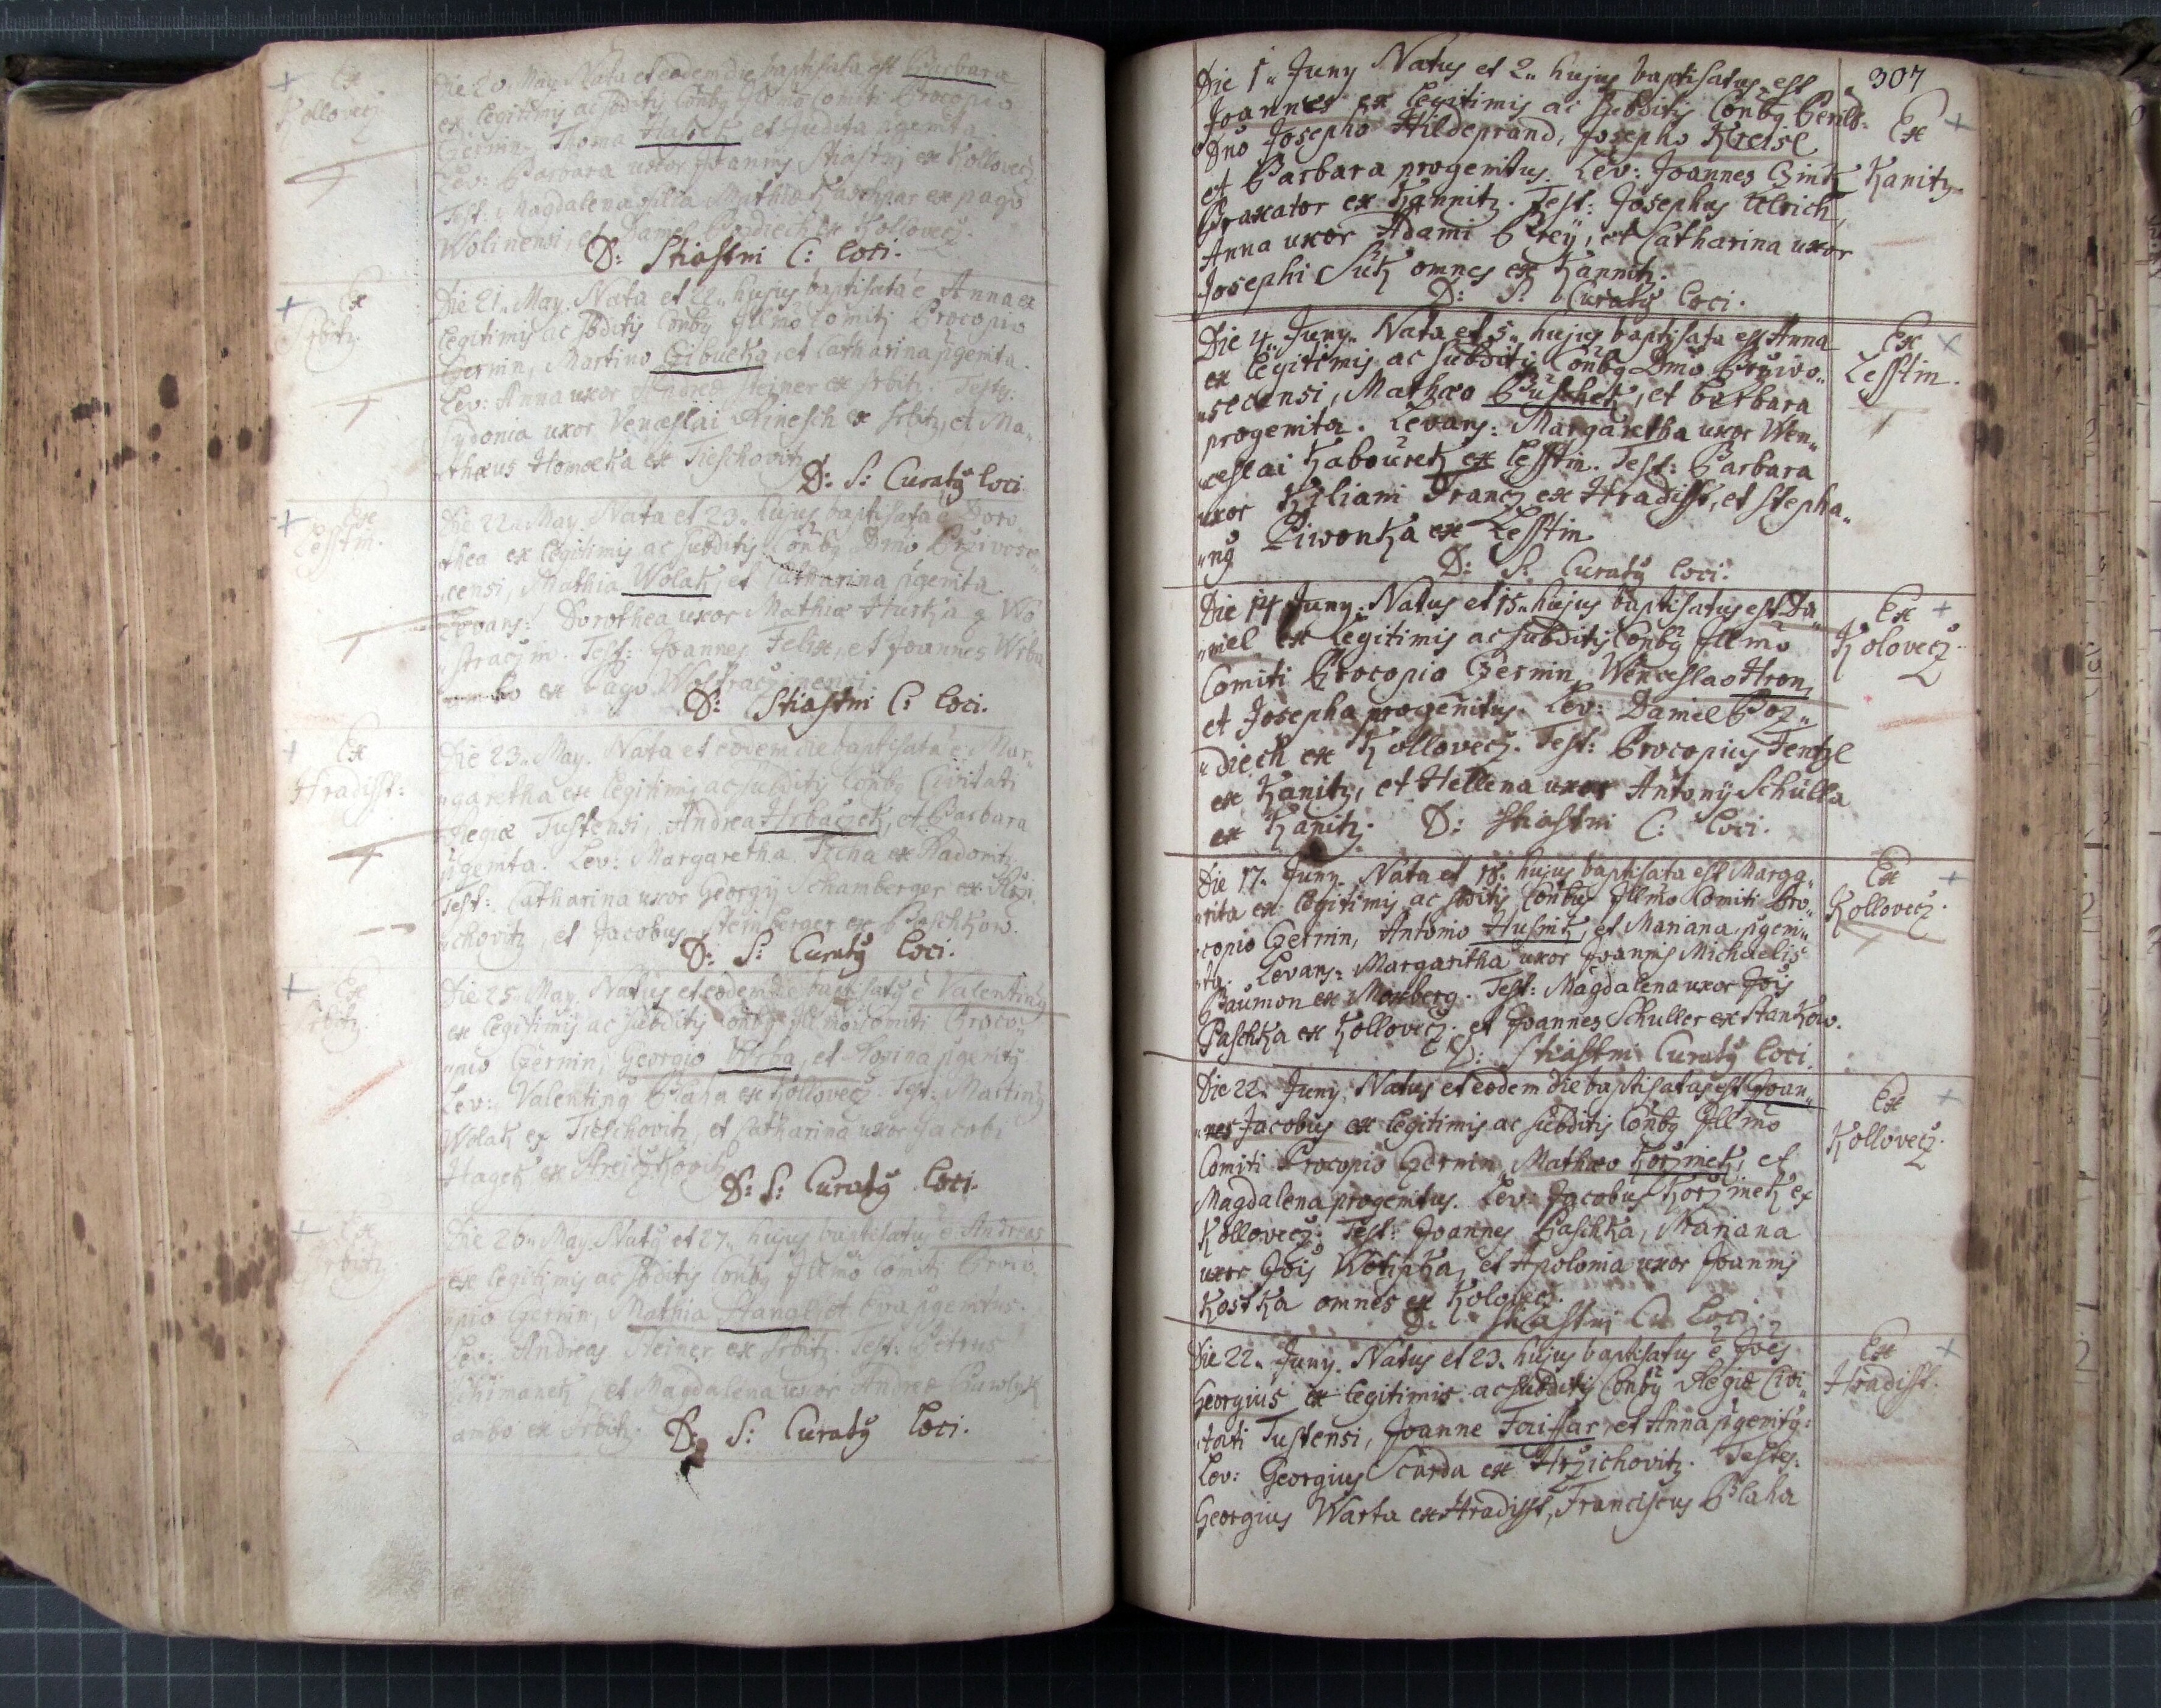 Ex
Kollovecz
Die 20. May. Nata et eodem die baptisata est Barbara
ex legitimis ac sbditis Conbg Illmo Comiti Procopio
Czernin, Thoma Haschek et Judita pgenita.
Lev: Barbara uxor Joannis Stiastni ex Kollovecz
Test: Magdalena filia Mathiæ Kaschpar ex pago
Wolinensi, et Daniel Pozdiech ex Kollovecz.
D: Stiastni C: loci.
Ex
Srbitz.
Die 21. May. Nata et 22. hujus baptisata e Anna ex
legitimis ac sbditis Conbg Illmo Comiti Procopio
Czernin, Martino Cibulka, et Catharina pgenita.
Lev: Anna uxor Andreæ Steiner ex Srbitz. Testes:
Sydonia uxor Venceslai Kinesch ex Srbitz, et Ma„
„thæus Homolka ex Tieschovitz
D: S: Curatg loci
Ex
Lesstin.
Die 22. May. Nata et 23. hujus baptisata e Doro„
„thea ex legitimis ac subditis Conbg Dmo Przivose„
„censi, Mathia Wolak, et Catharina pgenita
Levans: Dorothea uxor Mathiæ Hurka g Wo
„straczin. Test: Joannes Felix, et Joannes Wrba
ambo ex Pago Wostraczinensi
D: Stiastni C: loci.
Ex
Hradisst:
Die 23. May. Nata et eodem die baptisata e Mar„
„garetha ex legitimis ac subditis Conbg Civitati
Regiæ Tustensi, Andrea Hrbaczek, et Barbara
pgenita. Lev: Margaretha Ticha ex Radonitz
Test: Catharina uxor Georgij Schamberger ex Rzi„
„chovitz, et Jacobus Steinberger ex Paschkow.
D: S: Curatg loci.
Ex
Srbitz.
Die 25. May. Natus et eodem die baptisatg e Valenting
ex legitimis ac subditis Conbg Illmo Comiti Proco„
„pio Czernin, Georgio Wrba, et Rosina pgenitg
Lev: Valenting Blaha ex Kollovecz. Test: Marting
Wolak ex Tieschovitz, et Catharina uxor Jacobi
Hagek ex Strejczkovitz
D: S: Curatg loci.
Ex
Srbitz.
Die 26. May. Natg et 27. hujus baptisatus e Andreas
ex legitimis ac sbditis Conbg Illmo Comiti Proco„
„pio Czernin, Mathia Hana, et Eva pgenitus.
Lev: Andreas Steiner ex Srbitz. Test: Petrus
Schimanek, et Magdalena uxor Andreæ Pawlyk
ambo ex Srbitz.
D: S: Curatg loci.
307
Die 1. Juny Natus et 2. hujus baptisatus est
Joannes ex legitimis ac subditis Conbg Perill:
Dno Josepho Hildeprand, Josepho Kreisl
et Barbara progenitus. Lev: Joannes Czink
Braxator ex Kannitz. Test: Josephus Ulrich,
Anna uxor Adami Prey, et Catharina uxor
Josephi Suk omnes ex Kannitz.
D: S: Curatg loci.
Ex
Kanitz.
Die 4. Juny. Nata et 5. hujus baptisata est Anna
ex legitimis ac subditis Conbg Dmo Przivo„
„secensi, Mathæo Puschek, et Barbara
progenita. Levans: Margaretha uxor Wen„
„ceslai Kabourek ex Lesstin. Test: Barbara
uxor Kiliani Francz ex Hradisst, et Stepha„
„ng Piwonka ex Lesstin
D: S: Curatg loci.
Ex
Lesstin.
Die 14 Juny. Natus et 15. hujus baptisatus est Da„
„niel ex legitimis ac subditis Conbg Illmo
Comiti Procopio Czernin, Wenceslao Hron,
et Josepha progenitus. Lev: Daniel Poz„
„diech ex Kollovecz. Test: Procopius Fentzl
ex Kanitz, et Hellena uxor Antonij Schulla
ex Kanitz. D: Stiastni C: loci.
Ex
Kolovecz.
Die 17. Juny. Nata et 18. hujus baptisata est Marga„
„rita ex legitimis ac sbditis Conbus Illmo Comiti Pro„
„copio Czernin, Antonio Husnik, et Mariana pgeni„
„ta. Levans: Margaritha uxor Joannis Michaelis
Baumon ex Mexberg. Test: Magdalena uxor Jois
Paschka ex Kollovecz. et Joannes Schuller ex Stankow.
D: Stiastni Curatg loci.
Ex
Kollovecz.
Die 22. Juny. Natus et eodem die baptisatus est Joan„
„nes Jacobus ex legitimis ac subditis Conbg Illmo
Comiti Procopio Czernin, Mathæo Korzinek, et
Magdalena progenitus. Lev: Jacobus Korzinek ex
Kollovecz. Test: Joannes Paschka, Mariana
uxor Jois Wotipka, et Apolonia uxor Joannis
Kostka omnes ex Kolovecz.
D: Stiastni Cu loci.
Ex
Kollovecz.
Die 22. Juny. Natus et 23. hujus baptisatus e Joes
Georgius ex legitimis ac subditis Conbg Regiæ Civi„
„tati Tustensi, Joanne Faissar, et Anna pgenitg:
Lev: Georgius Scurda ex Hrzichovitz. Testes:
Georgius Warta ex Hradisst, Franciscus Blaha
Ex
Hradisst.